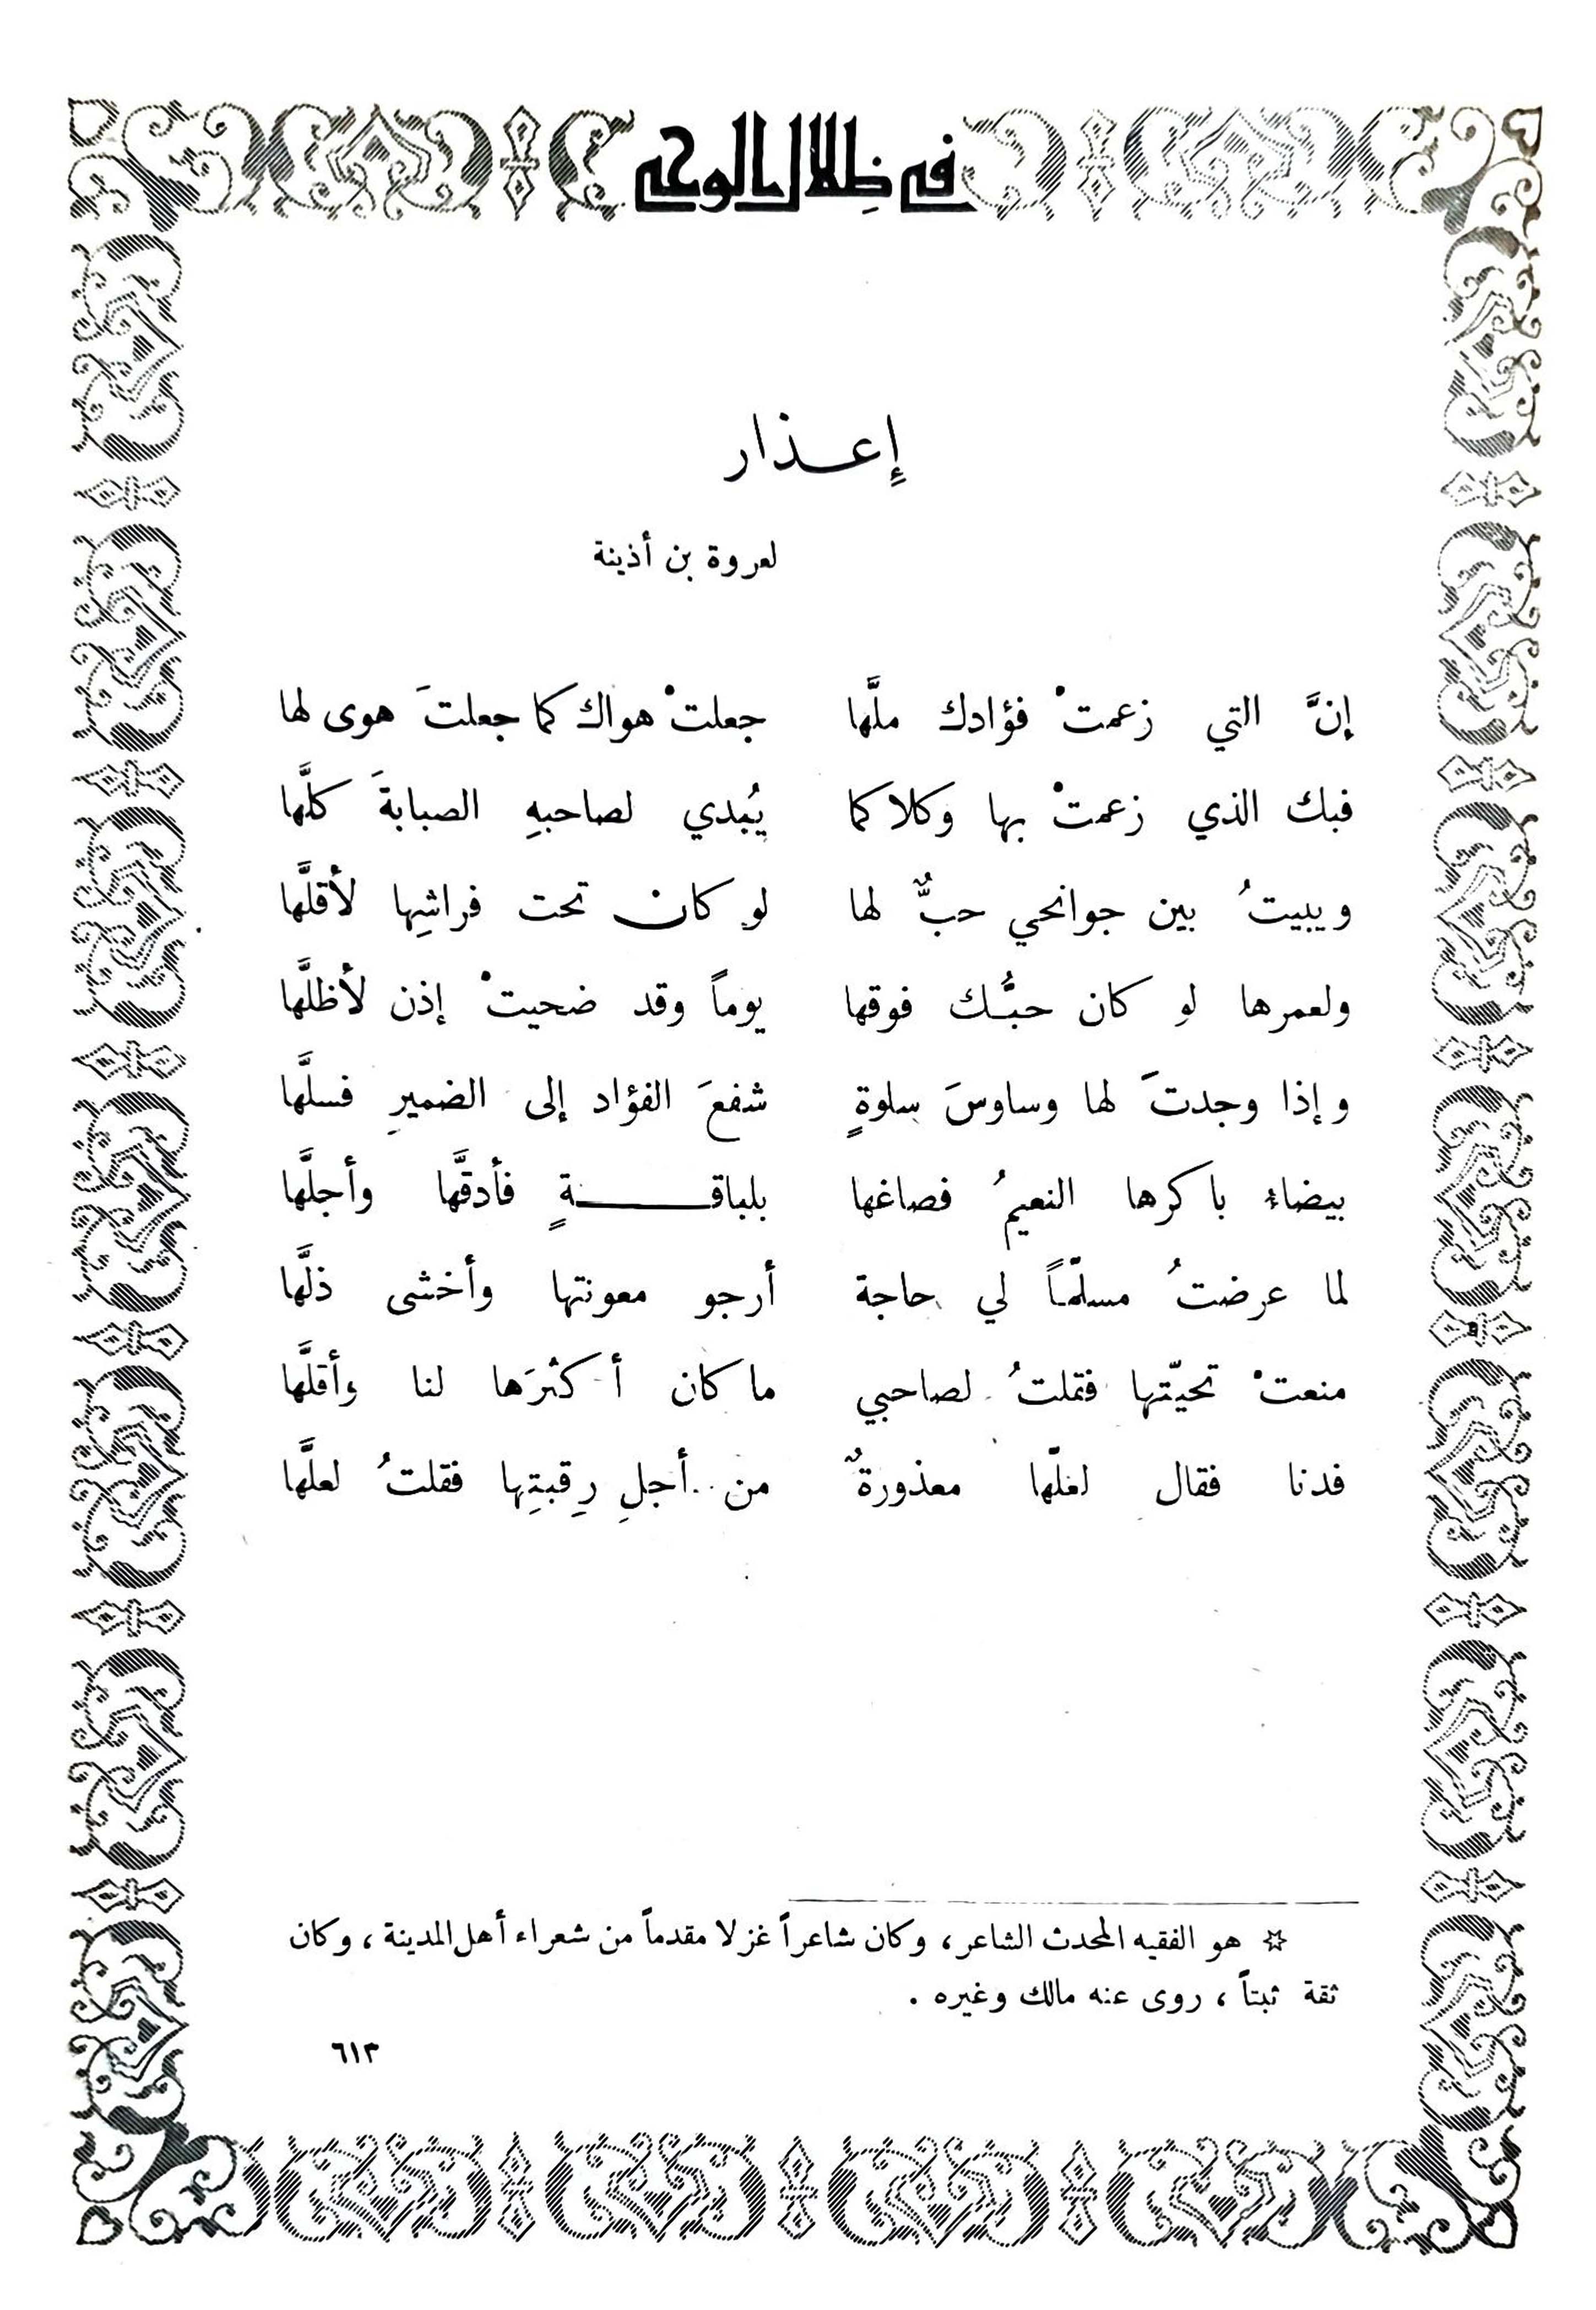 في ظلال الوحي
إعـذار
لعروة بن أذينة
إنَّ التي زعمتْ فؤادك ملَّها جعلتْ هواك كما جعلتَ هوى لها
فبك الذي زعمتْ بها وكلاكما يُبدي لصاحبهِ الصبابةَ كلَّها
ويبيتُ بين جوانحي حبٌّ لها لو كان تحت فراشِها لأقلَّها
ولعمرها لو كان حبُّـك فوقها يوماً وقد ضحيتْ إذن لأظلَّها
وإذا وجدتَ لها وساوسَ سلوةٍ شفعَ الفؤاد إلى الضميرِ فسلَّها
بيضاء باكرها النعيمُ فصاغها بلباقـــــةٍ فأدقَّها وأجلَّها
لما عرضتُ مسلّماً لي حاجة أرجو معونتها وأخشى ذلَّها
منعتْ تحيّتها فقلتُ لصاحبي ما كان أكثرَها لنا وأقلَّها
فدنا فقال لعلّها معذورةٌ من أجلِ رِقبتِها فقلتُ لعلَّها
☆ هو الفقيه المحدث الشاعر، وكان شاعراً غزلا مقدماً من شعراء أهل المدينة، وكان
ثقة ثبتاً، روى عنه مالك وغيره .
٦١٣